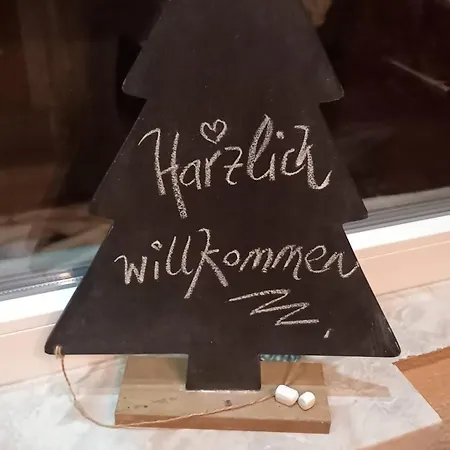 Harzlich
willkommen